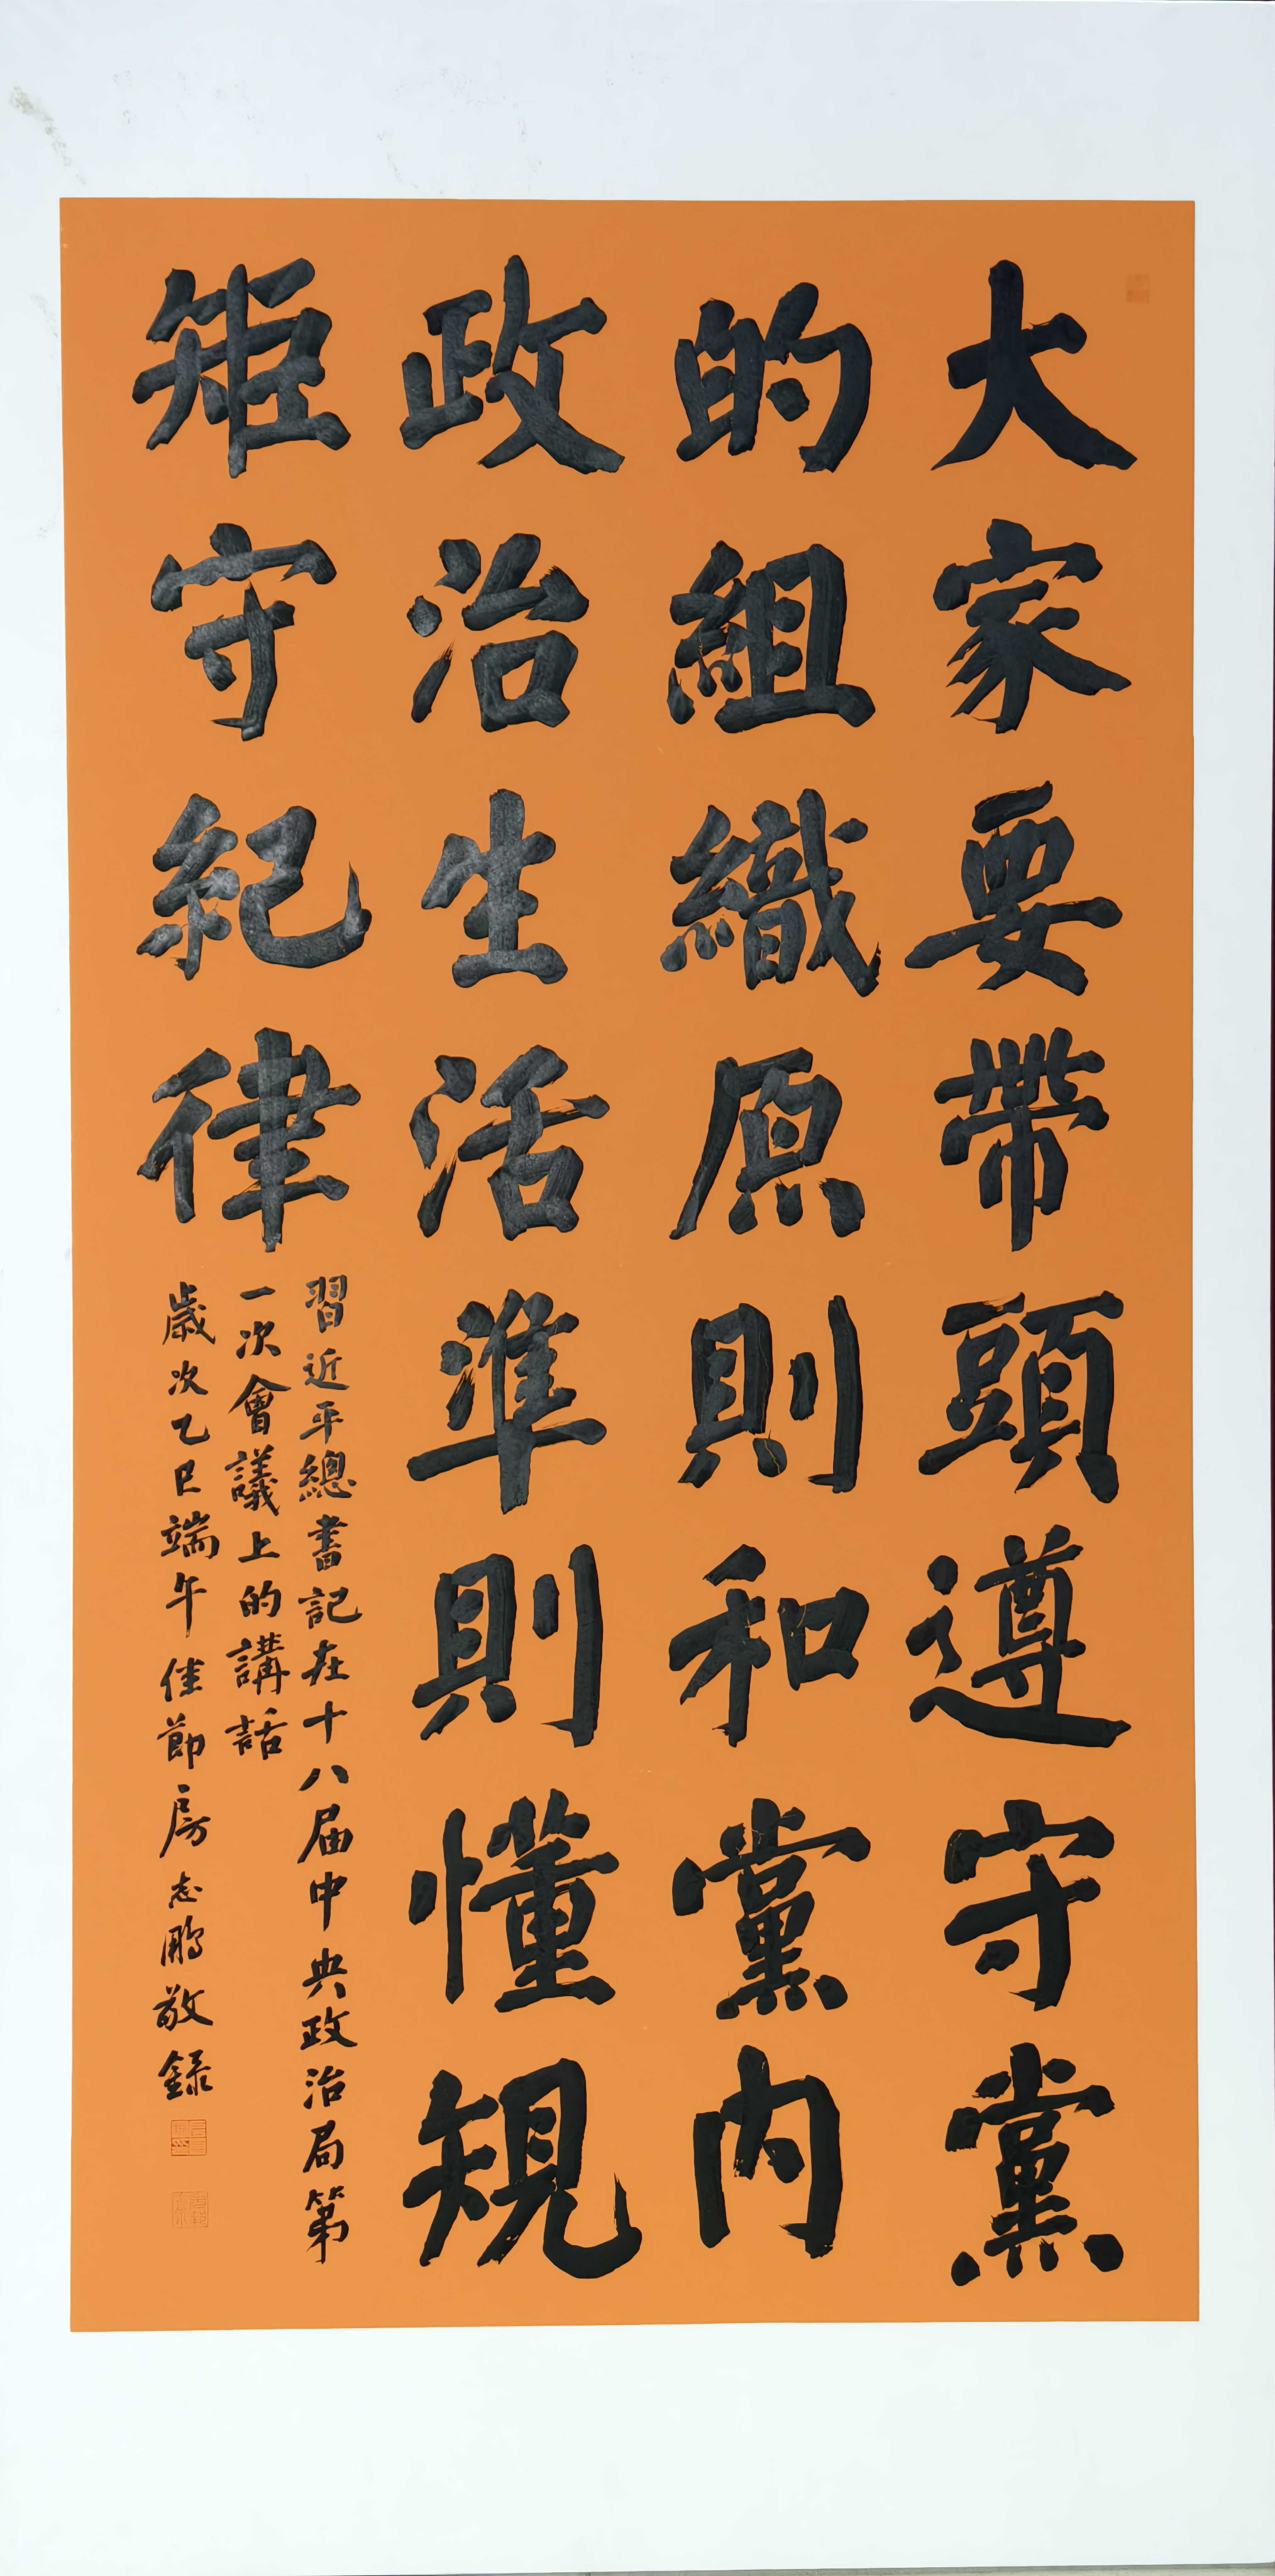 大家要帶頭遵守黨
的組織原則和黨內
政治生活準則懂規
矩守紀律
習近平總書記在十八届中央政治局第
一次會議上的講話
歲次乙巳端午佳節房志鵬敬録